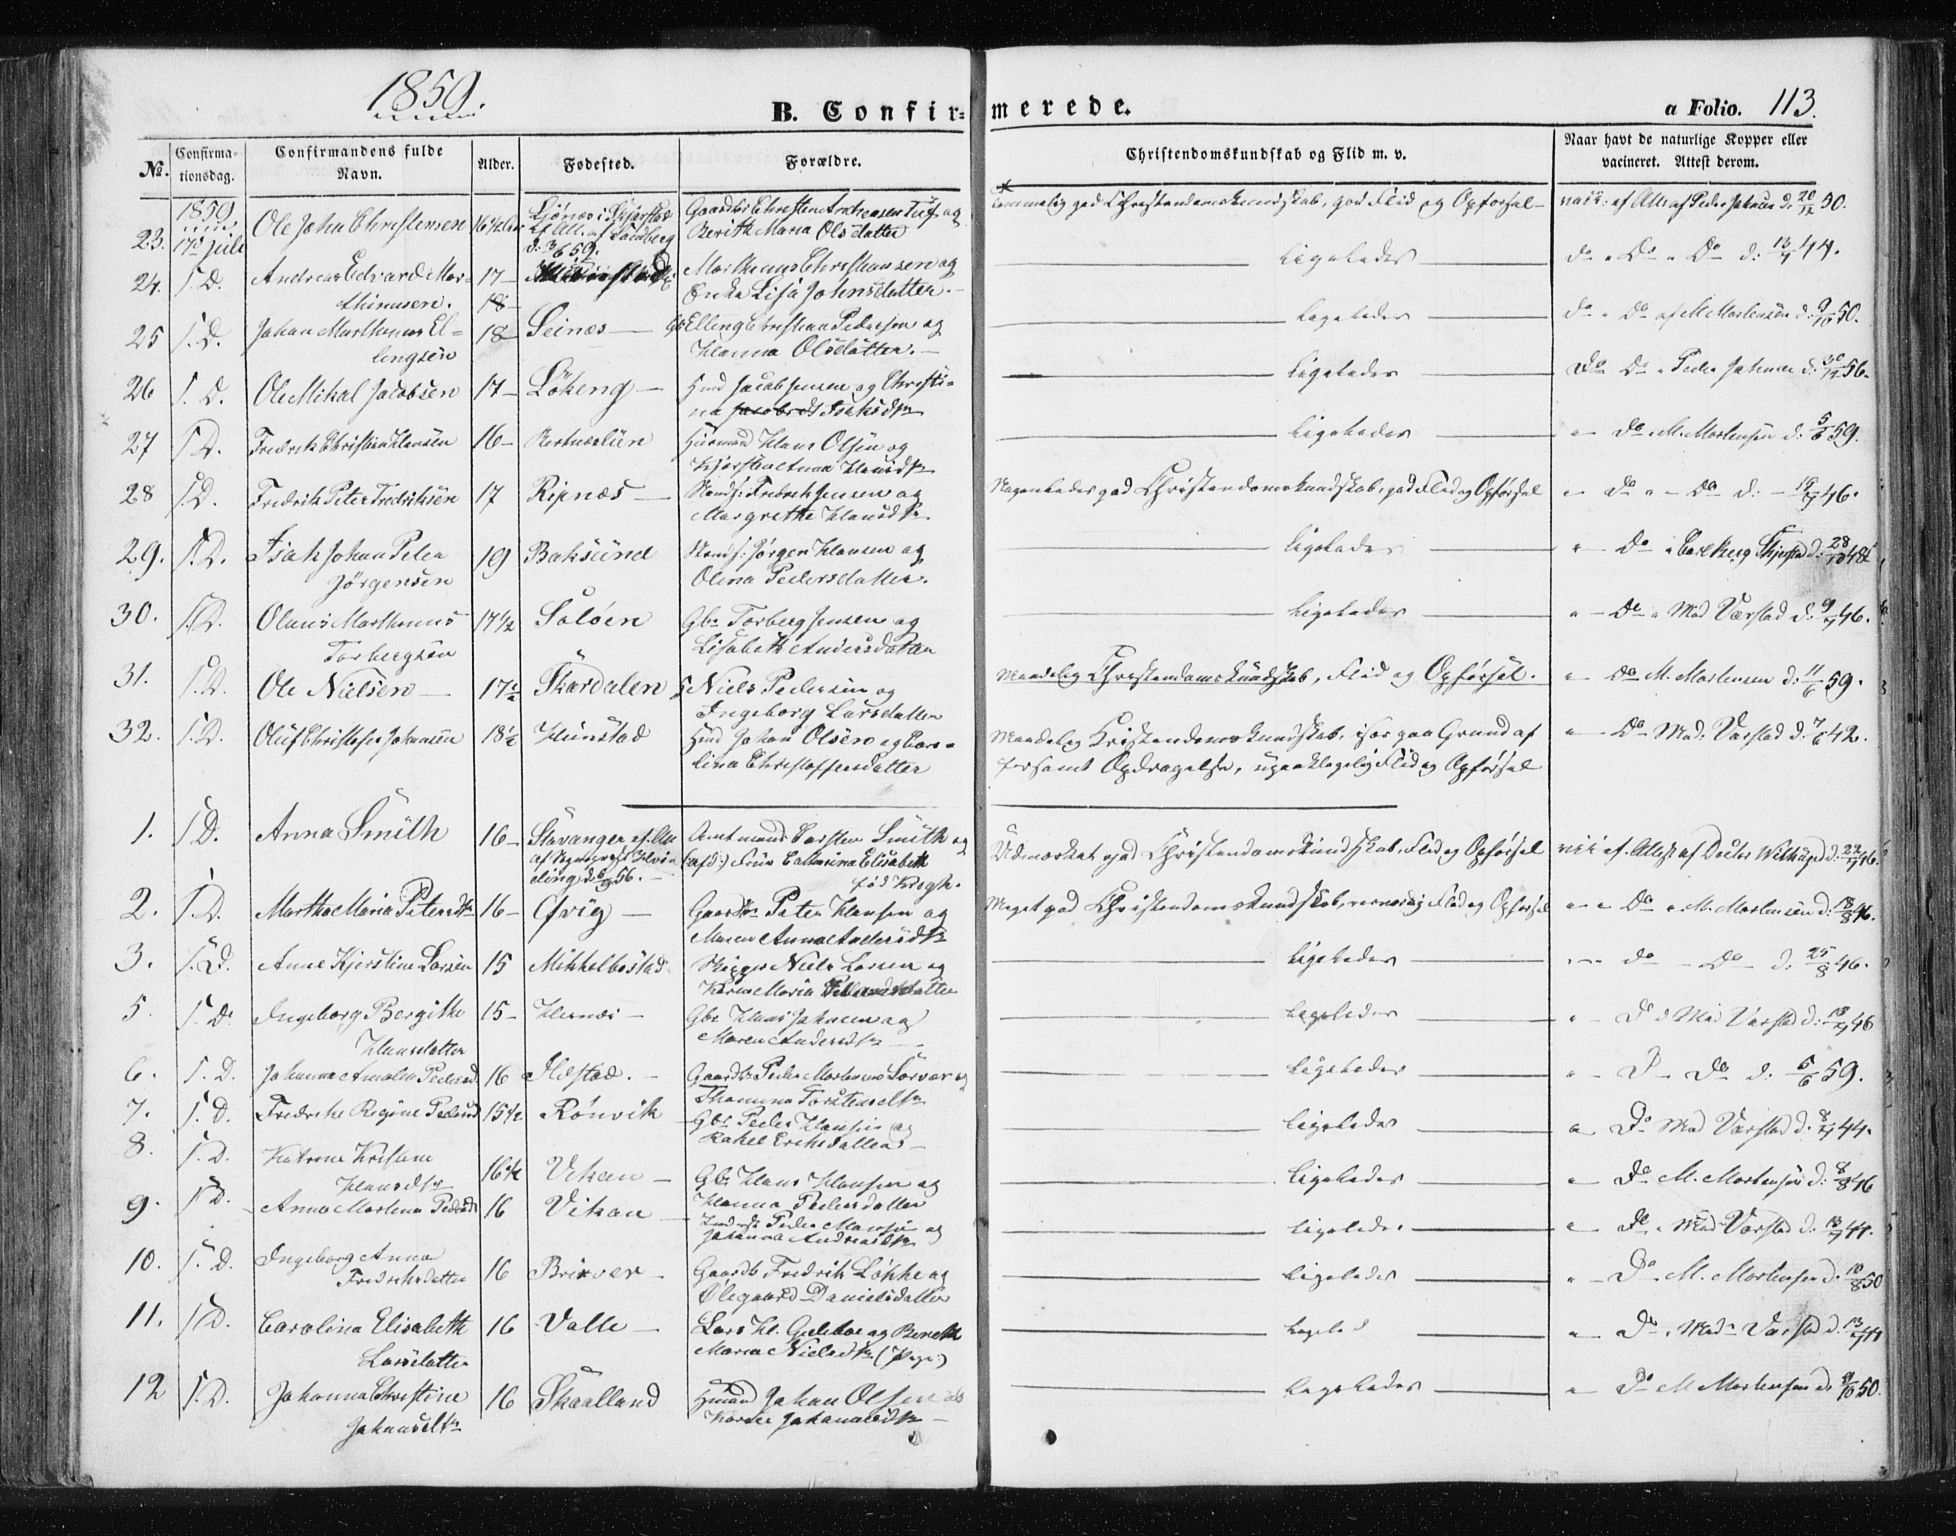 1859.
B. Confir=merede.
a Folio. 113.
No.
Confirmationsdag.
Confirmandens fulde Navn.
Alder.
Fødested.
Forældre.
Christendomskundskab og Flid m. v.
Naar havt de naturlige Kopper eller vacineret. Attest derom.
1859.
23. 17de Juli Ole Johan Christensen 16½ Gaardbr Christen Andreasen Tuf og
Berith Maria Olsdatter
24. S.D. Andreas Edvard Mar=
thinusen. 17 Marthinus Christiansen og
Lisa Johnsdatter.
Ligeledes
25 S.D. Johan Marthinus El=
lingsen 18 Seines Elling Christian Pedersen og
Hanna Olsdatter.
Ligeledes Do Do af M. Mortensen d: 9/10 50.
26 S.D. Ole Mikal Jacobsen 17 Løkeng Hmd Jacob Jensen og Christi=
na
Ligeledes Do Do Peder Johnsen d: 56.
27 S.D. Fredrik Christian Hansen 16 Huusmand Hans Olsen og
Kjerstin Anna Hansdtr
Ligeledes Do M. Mortensen d: 5/6 59.
28 S.D. Fredrik Peter Fredriksen 17 Ripnæs Fredrik Jensen og
Margrethe Hansdtr
Nogenledes god Christendomskundskab, god Flid og Opførsel Do Do d: 46.
29. S.D. Isak Johan Peter
Jørgensen 19 Baksund Jørgen Hansen og
Olina Pedersdatter.
Ligeledes Do d: 28/10 48
30. S.D. Olaus Marthinus
Torbergsen 17½ Soløen Gbr Torberg Jensen og
Lisabeth Andersdatter
Ligeledes Do Mad Værstad d: 46.
31. S.D. Ole Nielsen 17½ Skardalen Niels Pedersen og
Ingeborg Larsdatter
Maadelig Christendomskundskab, Flid og Opførsel. Do M. Mortensen d: 11/6 59.
32. S.D. Oluf Christofer Johansen 18½ Hunstad Hmd Johan Olsen og Caro=
lina Christoffersdatter
Maadelig Kristendomskundskab, især paa Grund af
forsømt Opdragelse, upaaklagelig Flid og Opførsel
Do Mad. Værstad d: 7/6 42.
1. S.D. Anna Smith 16 Stavanger Amtmand Carsten Smith og
Frue Catharina Elisabeth
født Krogh.
Udmærket god Christendomskundskab, Flid og Opførsel af Attest af Doctor d: 46.
2. S.D. Martha Maria Petersdtr 16 Peter Hansen og
Maren Anna Andersdtr
Meget god Christendomskundskab, Flid og Opførsel Do M. Mortensen d: 18/8 46.
3. S.D. Anne Kjerstine Larsen 15 Mikkelbostad Niels Larsen og
Karen Maria
Ligeledes Do Do d: 25/8 46.
5. S.D. Ingeborg Bergitte
Hansdatter 15 Hernes Gbr Hans Johnsen og
Maren Andersdtr
Ligeledes Do Mad Værstad d: 46
6. S.D. Johanna Amalia Pedersd 16 Ilstad. Gaardbr Peder Mortensen Sørvær og
Thomina Torstensdtr
Ligeledes Do d: 6/6 59.
7. S.D. Fredrike Regine Pedersd 15½ Rønvik Gbr Peder Hansen og
Rakel Eriksdatter
Ligeledes Do Mad Værstad d: 44.
8. S.D. Katrine Kristine
Hansdtr 16½ Vikan Gbr Hans Hansen og
Hanna Pedersdatter
Ligeledes Do M. Mortensen d: 8/8 46
9. S.D. Anna Martena Pedersd 16 Vikan Peder og
Johanna Andreasdtr
Ligeledes Do Mad Værstad d: 44.
10. S.D. Ingeborg Anna
Fredriksdatter 16 Brixver Gaardb Fredrik Løkke og
Olegaard Danielsdatter
Ligeledes Do M. Mortensen d: 10/8 50
11. S.D. Carolina Elisabeth
Larsdatter 16 Valle Lars og Bereth
Maria Nielsdtr
Ligeled Do Mad Værstad d: 44
12 S.D. Johanna Christine
Johansdtr 16 Skaalland Hmand Johan Olsen og
Karen Johannesdtr
Ligeledes Do M Mortensen d: 50.